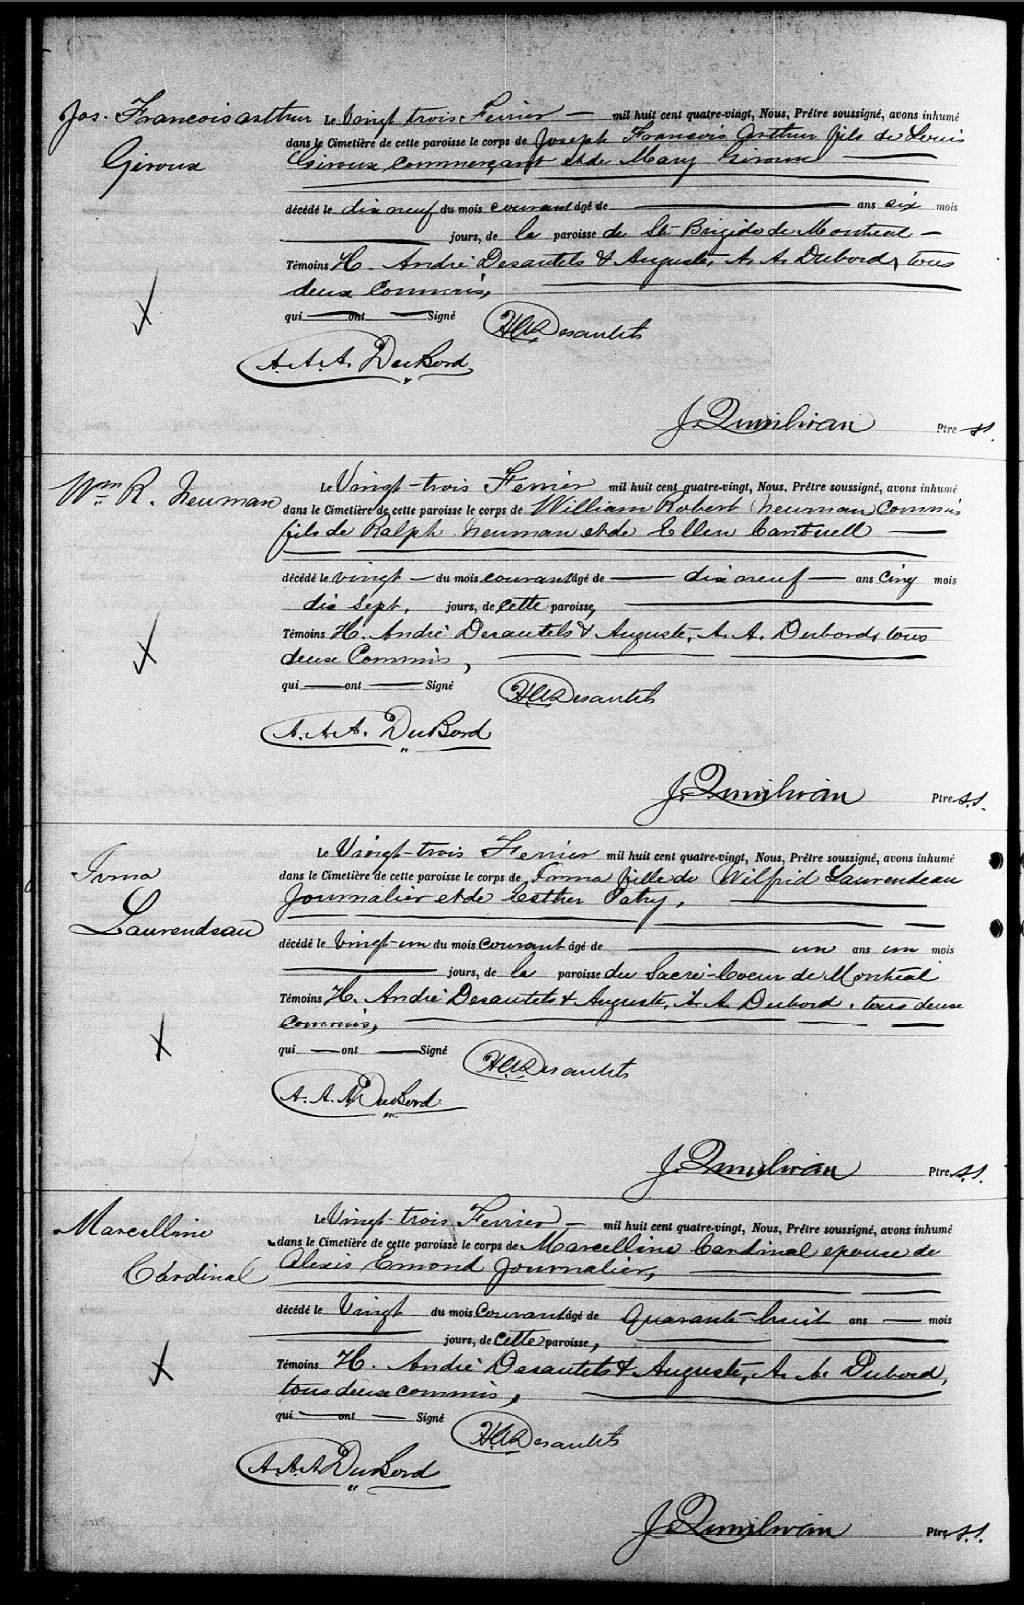 Jos. Francois arthur
Giroux
Le Vingt trois Fevrier — mil huit cent quatre-vingt, Nous, Prêtre soussigné, avons inhumé
dans le Cimetière de cette paroisse le corps de Joseph Francois Arthur fils de Louis
Giroux commerçant et de Mary Giroux
décédé le dix neuf du mois courant âgé de — ans six mois
— jours, de la paroisse de Ste Brigide de Montreal —
Témoins H. André Desautels & Auguste, A. A. Dubord, tous
deux Commis,
qui — ont — Signé
H A Desautels
A. A. A. DuBord
J. Quinlivan Ptre s.s.
Wm R. Neuman
Le Vingt-trois Fevrier mil huit cent quatre-vingt, Nous, Prêtre soussigné, avons inhumé
dans le Cimetière de cette paroisse le corps de William Robert Neuman Commis
fils de Ralph Neuman et de Ellen Cantwell —
décédé le vingt — du mois courant âgé de — dix neuf — ans Cinq mois
dix Sept, jours, de cette paroisse,
Témoins H. André Desautels & Auguste, A. A. Dubord, tous
deux Commis,
qui — ont — Signé
H A Desautels
A. A. A. DuBord
J. Quinlivan Ptre s.s.
Irma
Laurendeau
Le Vingt-trois Fevrier mil huit cent quatre-vingt, Nous, Prêtre soussigné, avons inhumé
dans le Cimetière de cette paroisse le corps de Irma fille de Wilfrid Laurendeau
Journalier et de Esther Patry,
décédé le Vingt-un du mois courant âgé de — un ans un mois
— jours, de la paroisse du Sacré-Coeur de Montréal
Témoins H. André Desautels & Auguste, A. A. Dubord, tous deux
Commis,
qui — ont — Signé
H A Desautels
A. A. A. DuBord
J. Quinlivan Ptre s.s.
Marcelline
Cardinal
Le Vingt-trois Fevrier — mil huit cent quatre-vingt, Nous, Prêtre soussigné, avons inhumé
dans le Cimetière de cette paroisse le corps de Marcelline Cardinal epouse de
Alexis Emond Journalier,
décédé le Vingt du mois Courant âgé de Quarante-huit ans — mois
— jours, de cette paroisse,
Témoins H. André Desautels & Auguste, A. A. Dubord,
tous deux commis,
qui — ont — Signé
H A Desautels
A. A. A. DuBord
J. Quinlivan Ptre s.s.